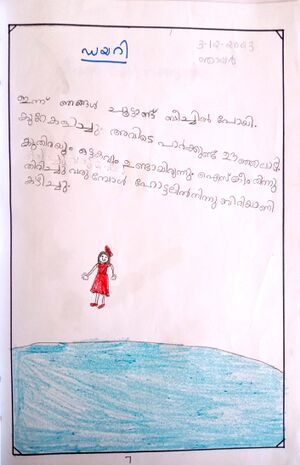 ഡയറി
3-12-2023
ഞായർ
ഇന്ന് ഞങ്ങൾ ബീച്ചിൽ പോയി.
കുറേ കളിച്ചു. അവിടെ പാർക്കുണ്ട് ഊഞ്ഞാലാടി
കുതിരയും ഒട്ടകവും ഉണ്ടായിരുന്നു. ഐസ്ക്രീം തിന്നു
തിരിച്ചു വരുമ്പോൾ ഹോട്ടലിൽനിന്നു ബിരിയാണി
കഴിച്ചു.
7